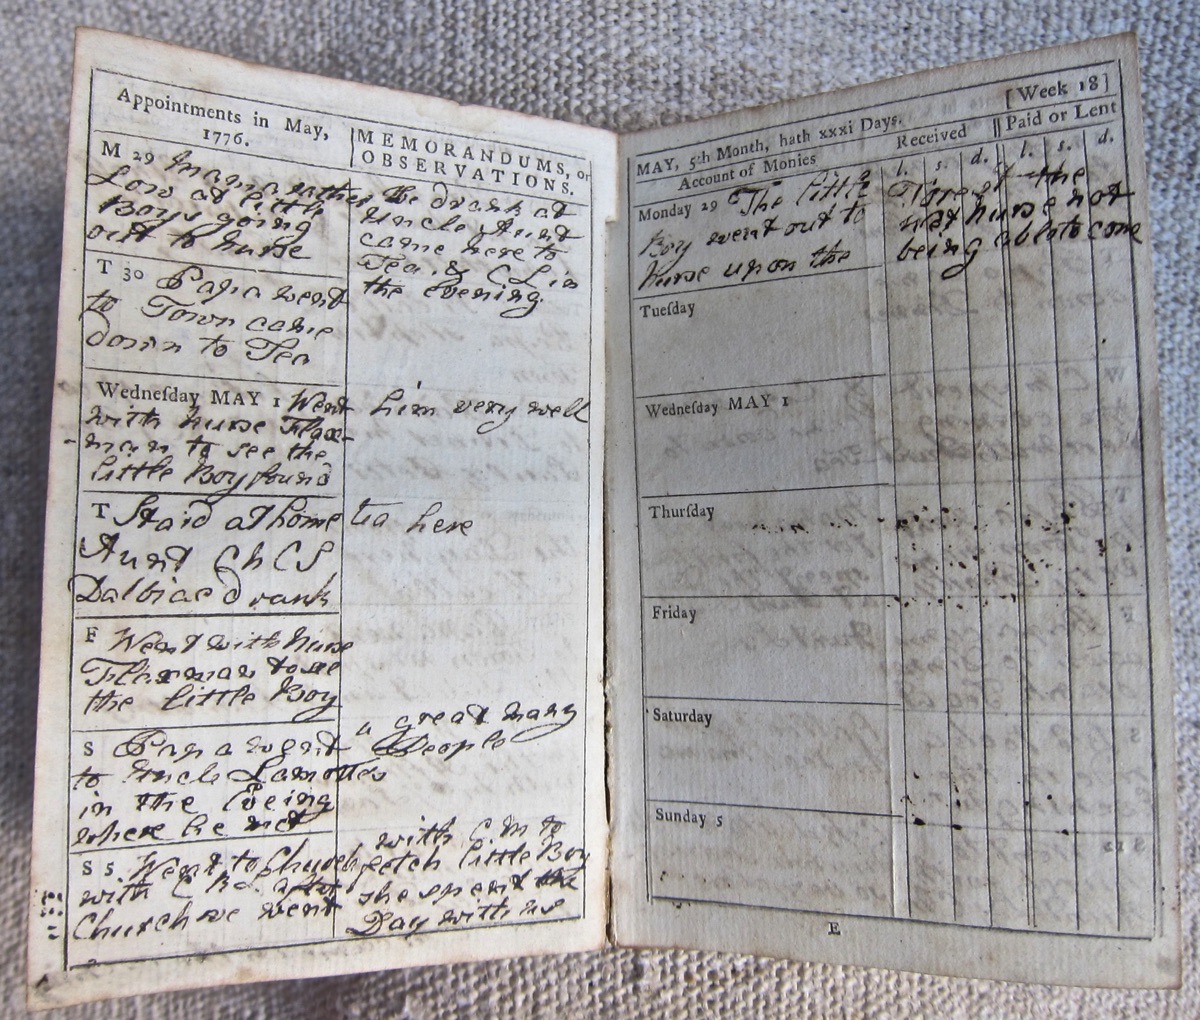 Appointments in May,
1776.
MEMORANDUMS, or
OBSERVATIONS.
M 29 Mama rather
Low at little
Boys going
out to nurse
We drank at
Uncle Aunt
came here to
Tea & C L in
the Evening.
T 30 Papa went
to Town came
down to Tea
Wedneſday MAY 1 Went
with nurse Flax-
-man to see the
little Boy found
him very well
T Staid at home
Aunt Ch C S
Dalbiac drank
tea here
F Went with nurse
Flaxman to see
the little Boy
S Papa went
to Uncle Lamottes
in the Eveing
where he met
a great many
People
S 5. Went to Church
with C B L after
Church we went
with C M to
fetch little Boy
she spent the
Day with us
[Week 18]
MAY, 5th Month, hath xxxi Days.
Account of Monies
Received
Paid or Lent
l. s. d. l. s. d.
Monday 29 The little
Boy went out to
nurse upon the
the
wet nurse not
being able to come
Tueſday
Wedneſday MAY 1
Thurſday
Friday
Saturday
Sunday 5
E